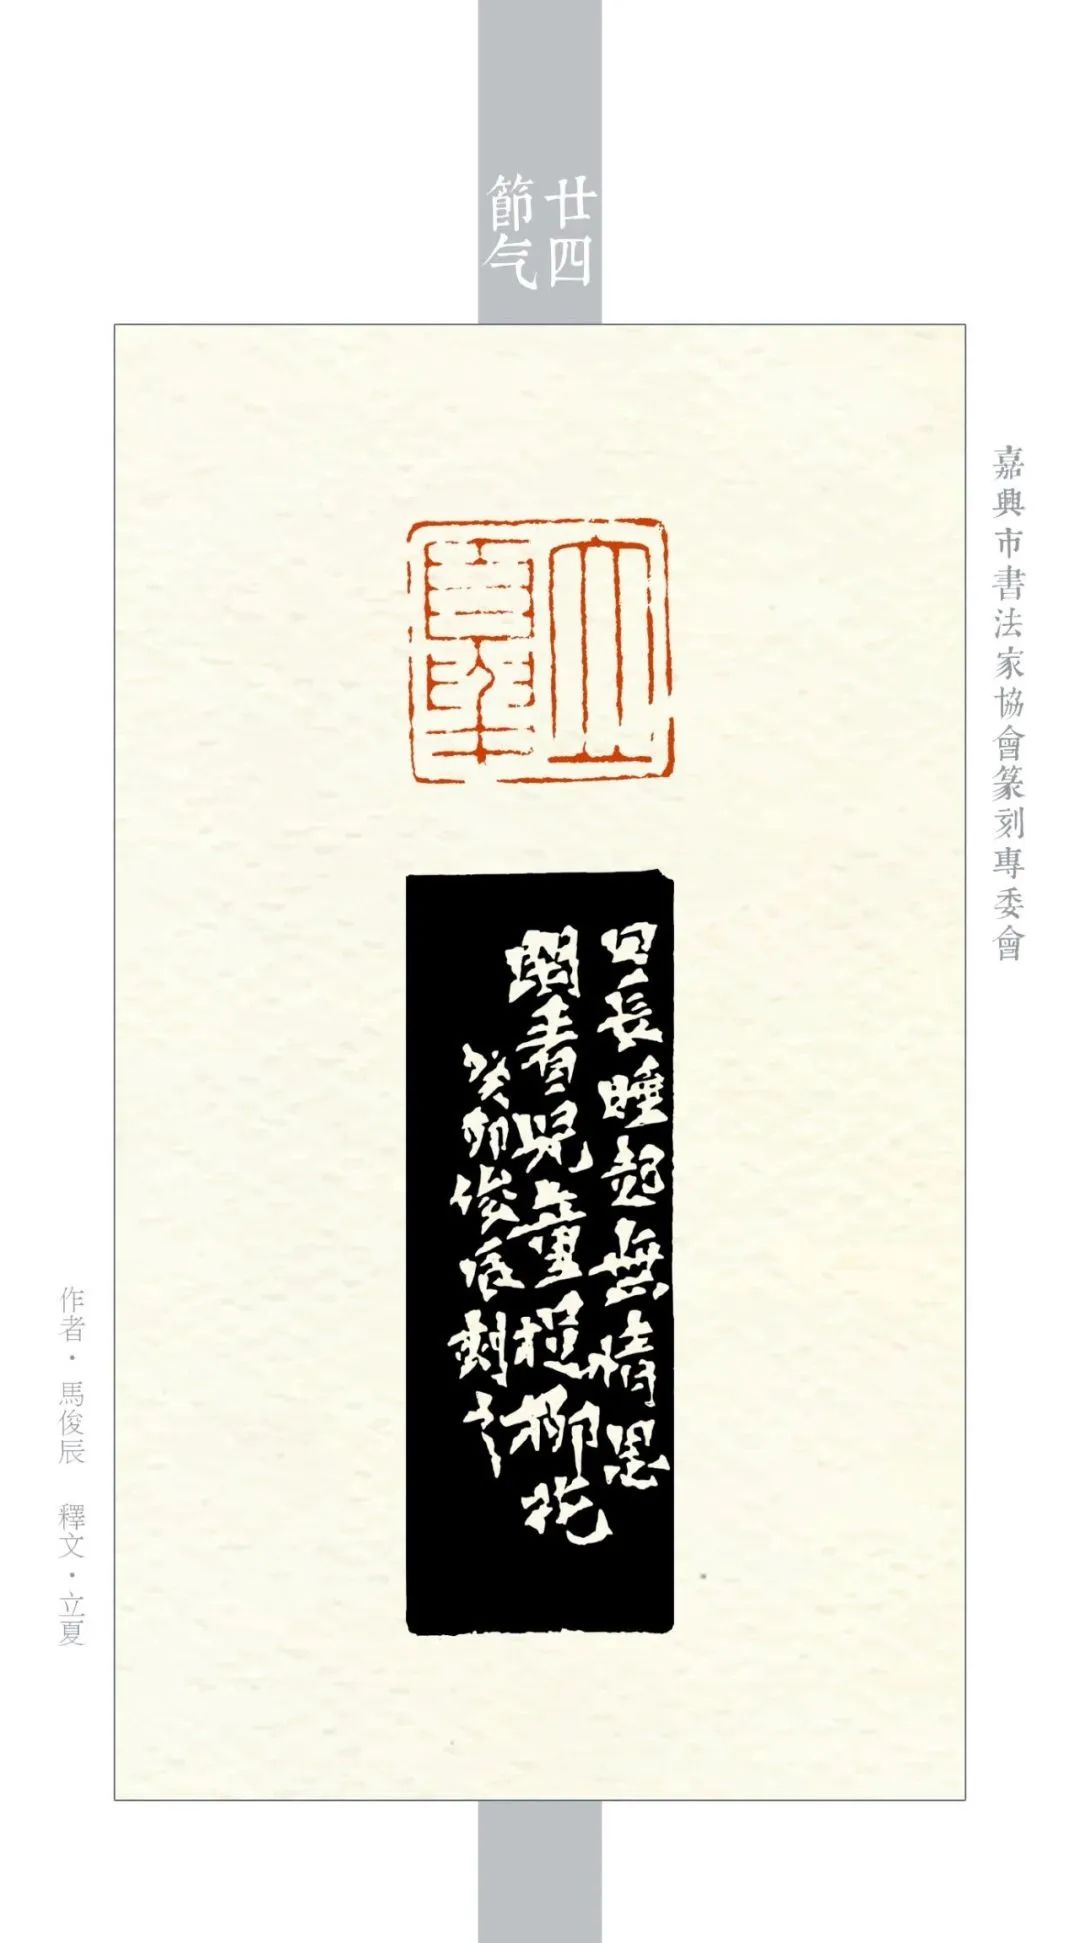 廿四
節气
嘉興市書法家協會篆刻專委會
立
夏
日長睡起無情思
閑看兒童捉柳花
癸卯俊辰刻
作者·馬俊辰 釋文·立夏